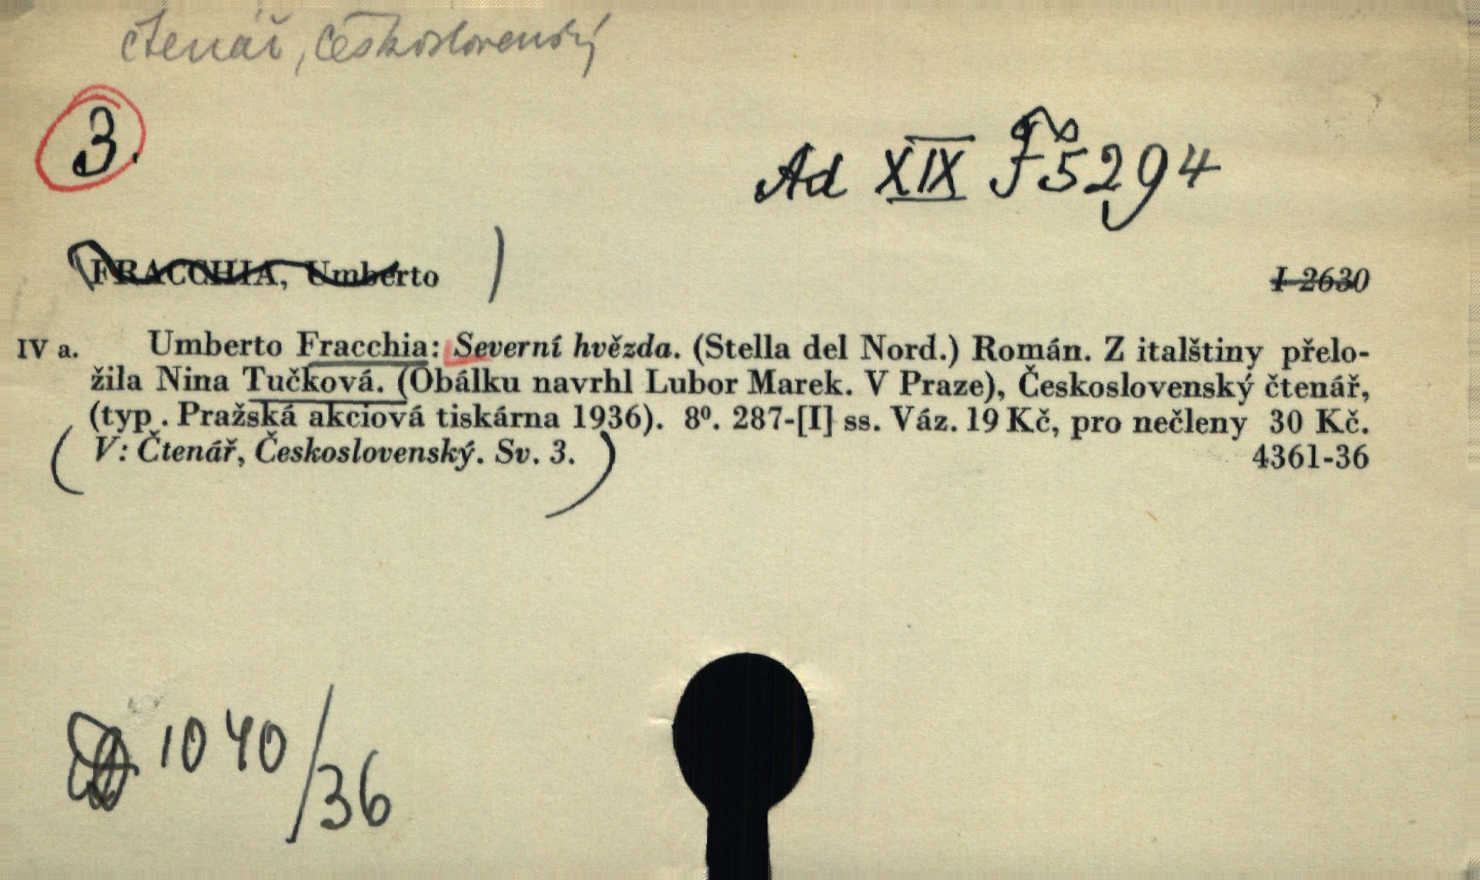 čtenář, československý
3.
Ad XIX F 5294
FRACCHIA, Umberto
I 2630
IV a. Umberto Fracchia: Severní hvězda. (Stella del Nord.) Román. Z italštiny přelo-
žila Nina Tučková. (Obálku navrhl Lubor Marek. V Praze), Československý čtenář,
(typ. Pražská akciová tiskárna 1936). 8°. 287-[I] ss. Váz. 19 Kč, pro nečleny 30 Kč.
(V: Čtenář, Československý. Sv. 3.) 4361-36
1040/36